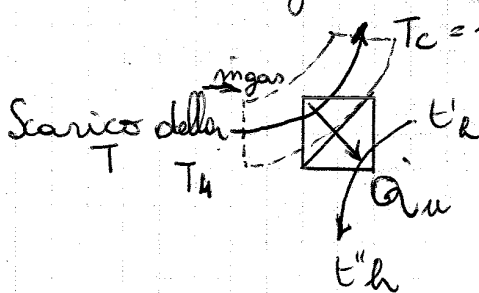 Tc =
ṁgas
Scarico della
T
T4
t'h
Q̇u
t"h